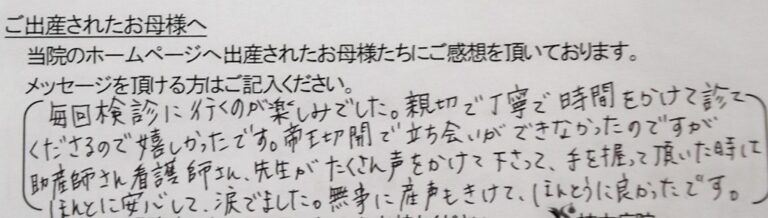 ご出産されたお母様へ
当院のホームページへ出産されたお母様たちにご感想を頂いております。
メッセージを頂ける方はご記入ください。
毎回検診に行くのが楽しみでした。親切で丁寧で時間をかけて診て
くださるので嬉しかったです。帝王切開で立ち会いができなかったのですが
助産師さん看護師さん、先生がたくさん声をかけて下さって、手を握って頂いた時して
ほんとに安心して、涙でました。無事に産声もきけて、ほんとうに良かったです。